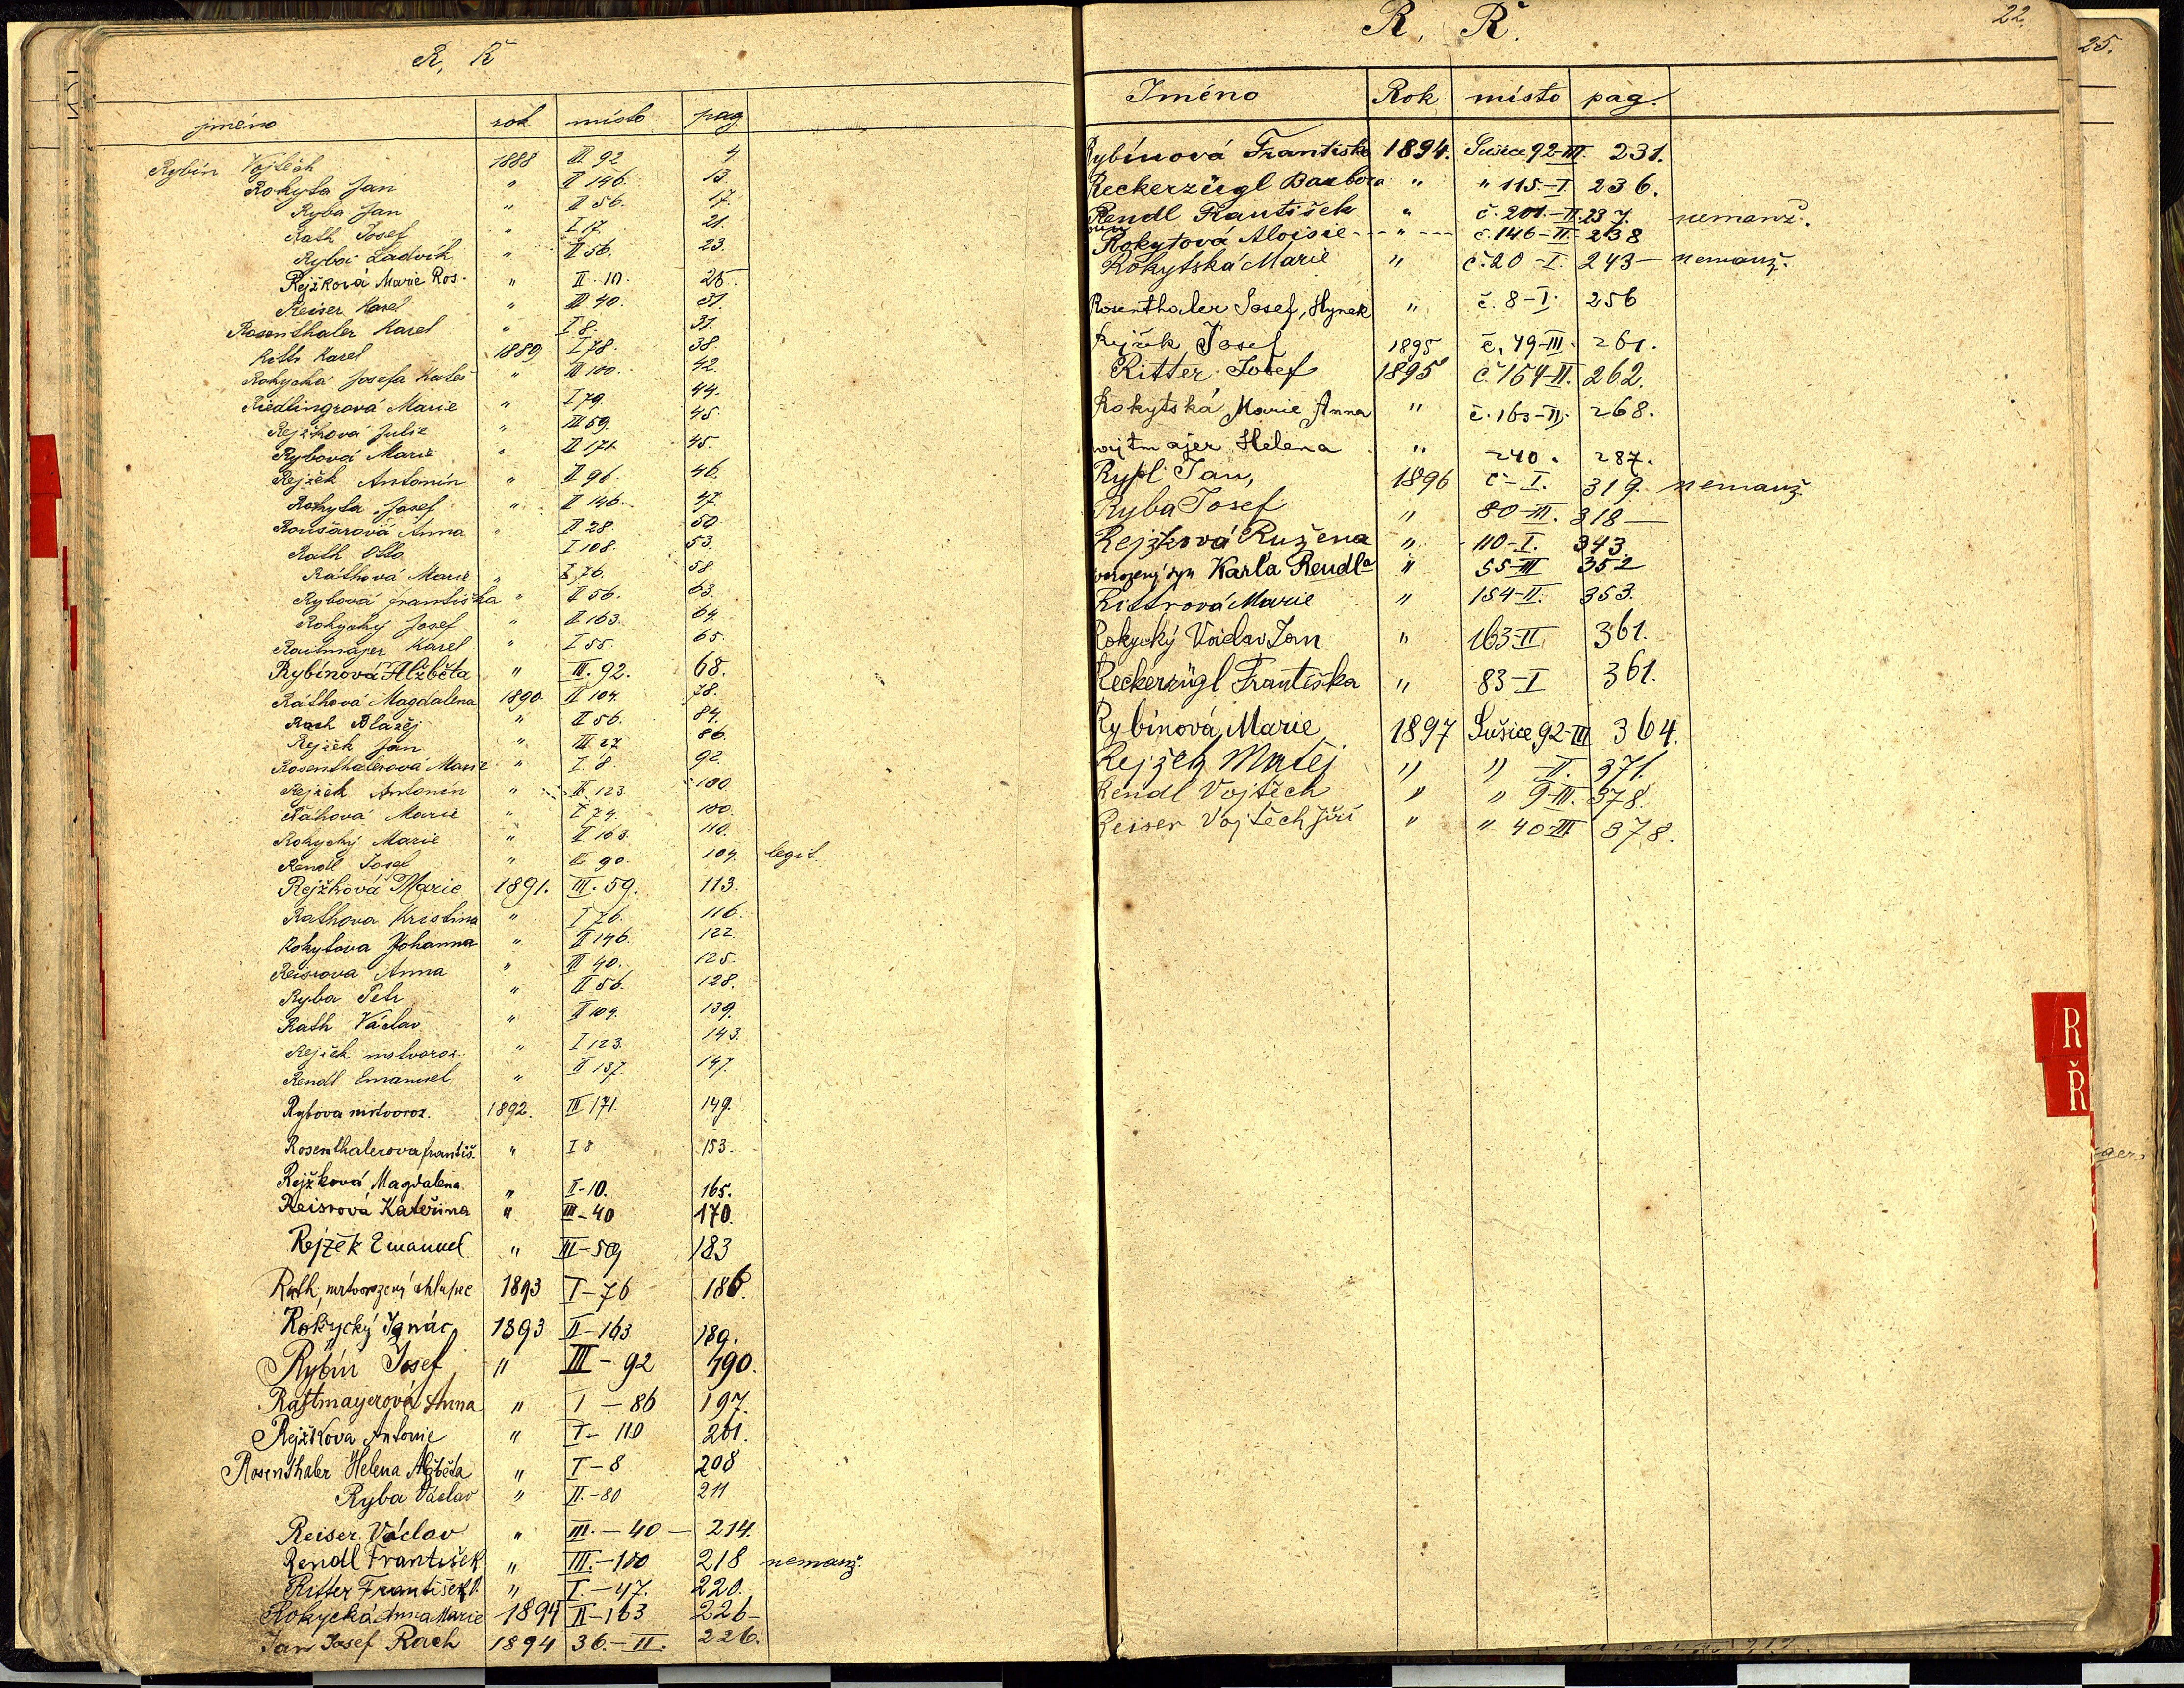 R, Ř
jméno rok místo pag.
Rybín Vojtěch 1888 III 92 4
Rokyta Jan " II 146 13.
Ryba Jan " II 56. 17.
Rath Josef " I 17. 21.
Ryba Ludvík " II 56. 23.
Rejžková Marie Ros. " II. 10. 25.
Reiser Karel " III 40. 31.
Rosenthaler Karel " I 8. 31.
Karel 1889 I 78. 38.
Josefa " III 100. 42.
Riedlingrová Marie " I 79. 44.
Rejžková Julie " III 59. 45
Rybová Marie " II 171 45
Rejžek Antonín " II 96. 46.
Rokyta Josef " II 146. 47.
Anna " II 28. 50
Rath Otto I 108. 53.
Ráthová Marie " I 76. 58.
Rybová Františka " II 56. 63.
Rokycký Josef " II 163. 64.
Karel " I 55. 65.
Rybínová Alžběta " III. 92. 68.
Ráthová Magdalena 1890 II 104. 78.
Rach Blažej " II 56. 84.
Rejžek Jan " III 27 86.
Rosenthalerová Marie " I. 8. 92.
Rejžek Antonín " II 123 100
Marie " I 74. 100.
Rokycký Marie " II 163. 110.
Rendl Josef " III 90. 104. legit.
Rejžková Marie 1891. III. 59. 113.
Rathova Kristina " I 76. 116.
Rokytova Johanna " II 146. 122.
Reisrova Anna " III 40. 125.
Ryba Petr " II 56. 128.
Rath Václav " II 104. 139.
Rejžek mrtvoroz. " I 123. 143.
Rendl Emanuel " II 137. 147.
Rybova mrtvoroz. 1892. III 171. 149.
Rosenthalerova františ. " I 8 153.
Rejžková Magdalena " II-10. 165.
Reisrová Kateřina " III-40 170.
Rejžek Emanuel " III-59 183
Rath, mrtvorozený chlapec 1893 I-76 186.
Rokycký Ignác 1893 II-163 189.
Rybín Josef " III-92 190.
Anna " I-86 197.
Rejžkova Antonie " I-110 201.
Rosenthaler Helena Alžběta " I-8 208
Ryba Václav " II.-80 211
Reiser Václav " III.-40- 214.
Rendl František " III.-100 218 nemanž.
Ritter František " I.-47. 220.
Rokycká Anna Marie 1894 II-163 226-
Jan Josef Rach 1894 36.-II. 226.
R, Ř. 22.
Jméno Rok místo pag.
Rybínová Františka 1894. Sušice 92-III. 231.
Reckerzügl Barbora " " 115.-I 236.
Rendl František " č. 201.-II. 237. nemanž.
Rokytová Aloisie---"--- č. 146-II- 238
Rokytská Marie " č. 20-I. 243- nemanž.
Rosenthaler Josef, Hynek " č. 8-I. 256
Rejžek Josef 1895 č. 49-III. 261.
Ritter Josef 1895 č. 154-II. 262.
Rokytská Marie Anna " č. 163-II. 268.
Helena " 240. 287.
Rypl Jan, 1896 č-I. 319. nemanž.
Ryba Josef " 80-III. 318-
Rejžková Růžena " 110-I. 343.
syn Karla Rendla " 55-III 352
Rittrová Marie " 154-II. 353.
Rokycký Václav Jan " 163-II 361.
Reckerzügl Františka " 83-I 361.
Rybínová Marie 1897 Sušice 92-III 364.
Rejžek Matěj " " -II. 371.
Rendl Vojtěch " " 9-III. 378.
Reiser Vojtěch Jiří " " 40-III 378.
25.
R
Ř